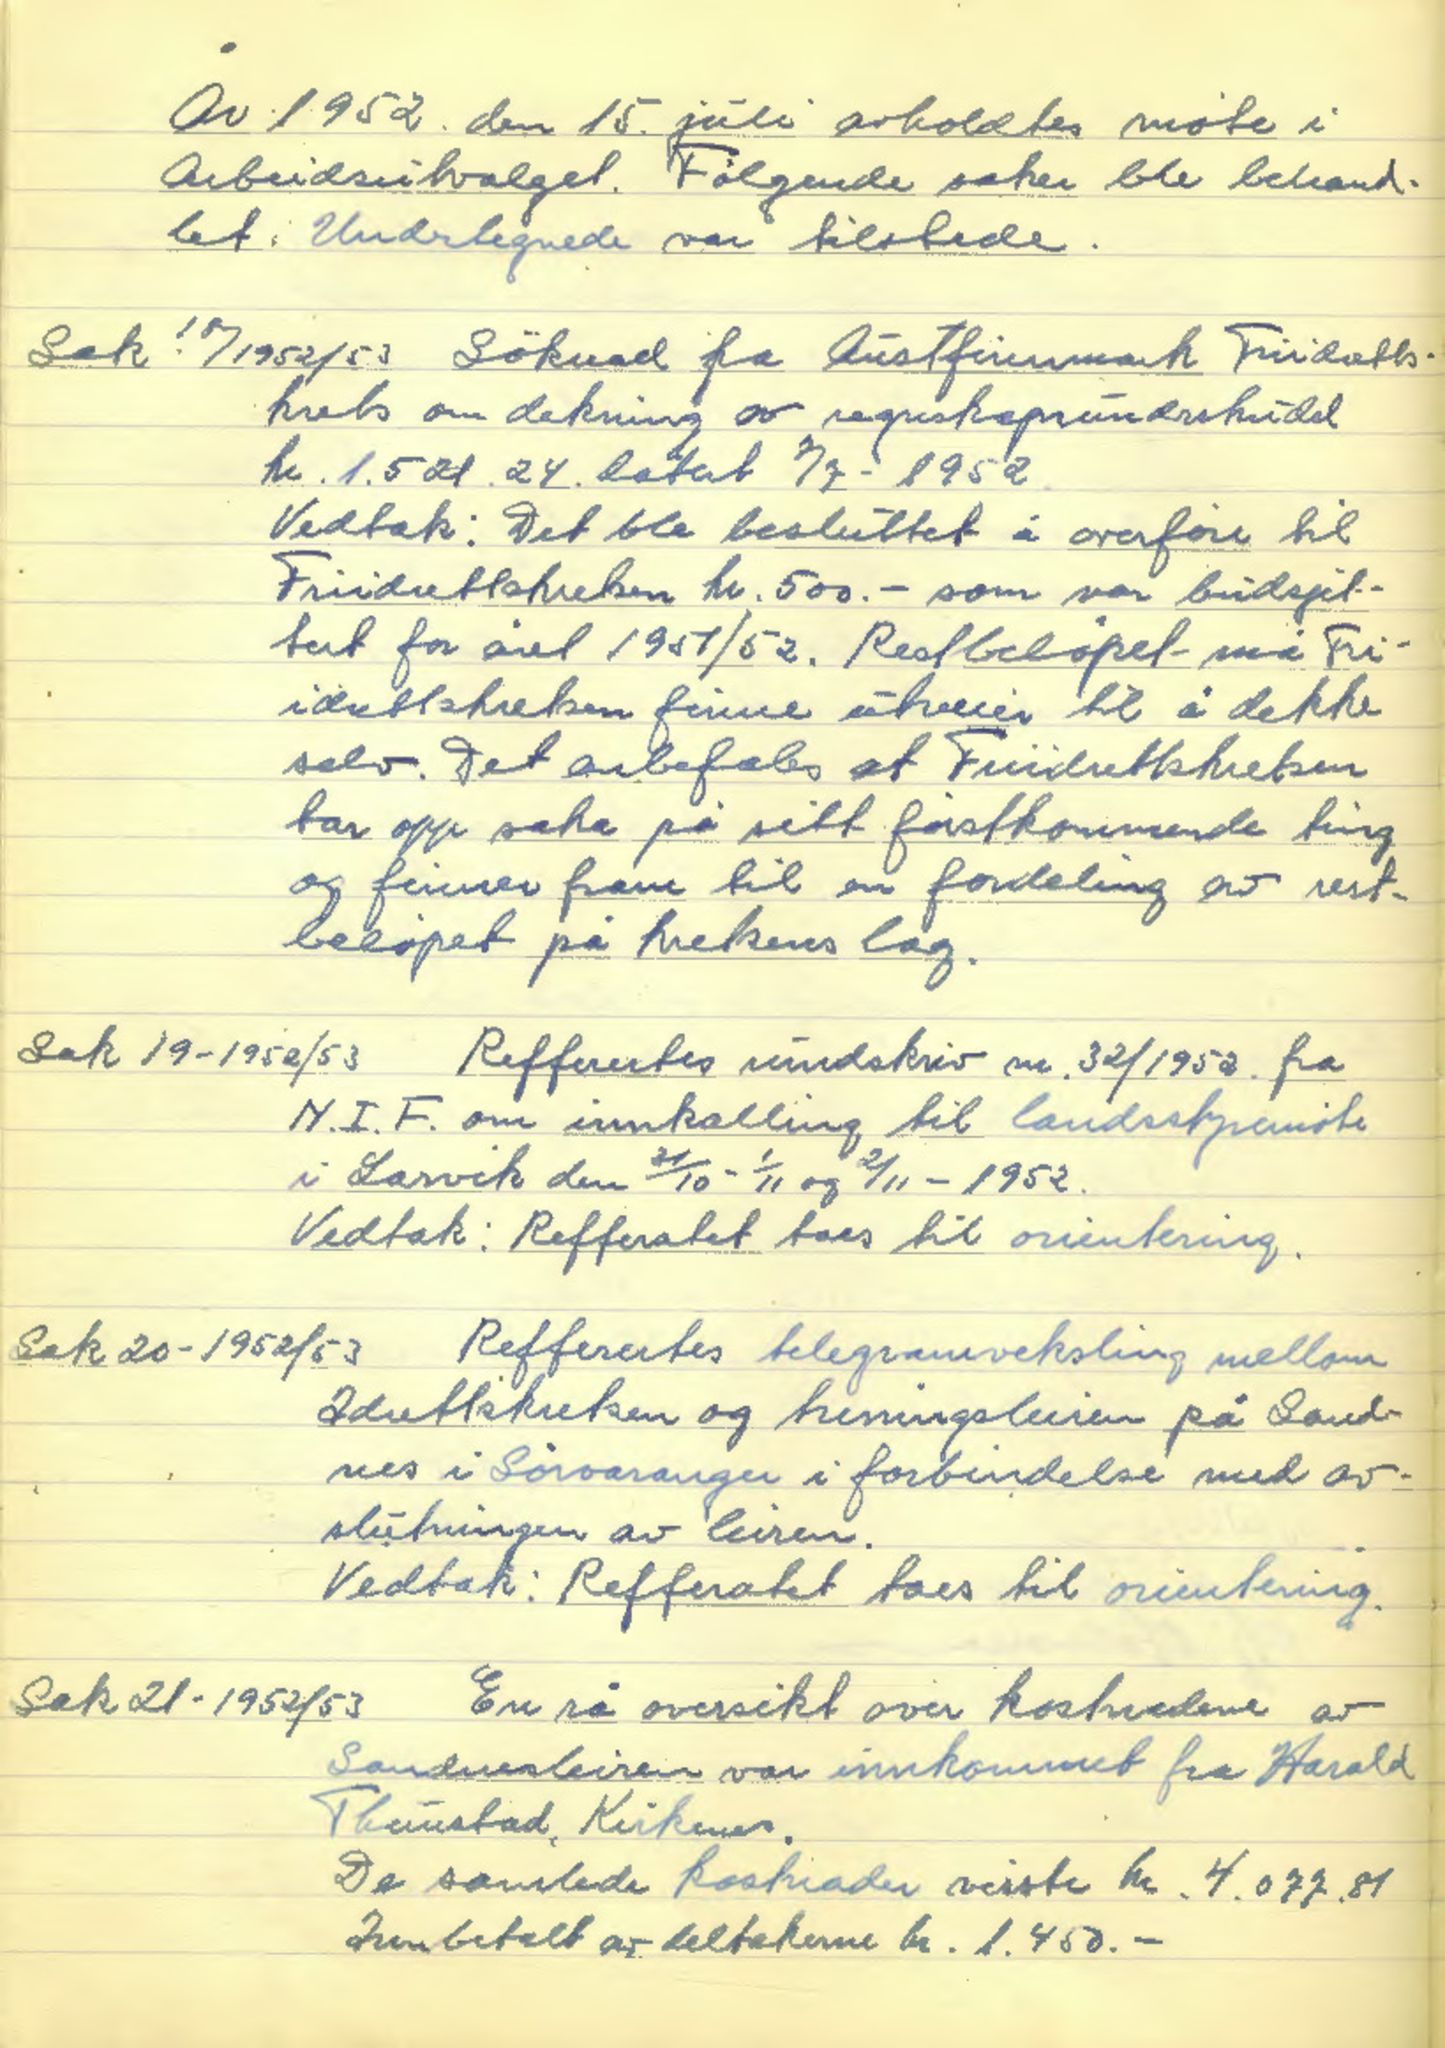 År 1952. den 15. juli avholdtes møte i
Arbeidsutvalget. Følgende saker ble behand-
let. Undertegnede var tilstede.
Sak 18/1952/53 Søknad fra Austfinnmark Friidretts-
krets om dekning av regnskapsundrskudd
kr. 1.521.24. datert 7/7-1952
Vedtak: Det ble besluttet å overføre til
Friidrettskretsen kr. 500.- som var budsjet-
tert for året 1951/52. Restbeløpet må Fri-
idrettskretsen finne utveier til å dekke
selv. Det anbefales at Friidrettskretsen
tar opp saka på sitt førstkommende ting
og finner fram til en fordeling av rest-
beløpet på kretsens lag.
Sak 19-1952/53 Reffertes rundskriv nr. 32/1952. fra
N.I.F. om innkalling til landsstyremøte
i Larvik den 31/10-1/11 og 2/11-1952.
Vedtak: Refferatet taes til orientering.
Sak 20-1952/53 Reffertes telegramveksling mellom
Idrettskretsen og treningsleiren på Sand-
nes i Sørvaranger i forbindelse med av-
slutningen av leiren.
Vedtak: Refferatet taes til orientering.
Sak 21-1952/53 En rå oversikt over kostnadene av
Sandnesleiren var innkommet fra Harald
Kirkenes.
De samlede kostnader viste kr. 4.077.81
Innbetalt av deltakerne kr. 1.450.-